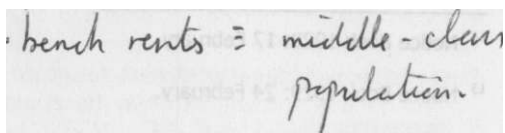 · bench rents = middle-class
population.